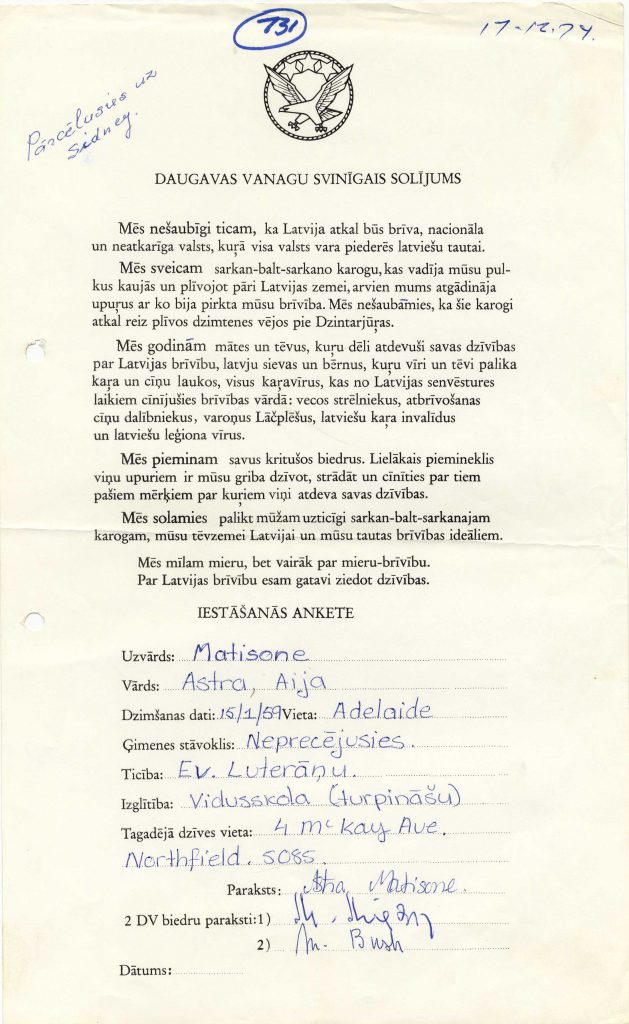 731
17-12.74.
Pārcēlusies uz
Sidney.
DAUGAVAS VANAGU SVINĪGAIS SOLĪJUMS
Mēs nešaubīgi ticam, ka Latvija atkal būs brīva, nacionāla
un neatkarīga valsts, kuŗā visa valsts vara piederēs latviešu tautai.
Mēs sveicam sarkan-balt-sarkano karogu, kas vadīja mūsu pul-
kus kaujās un plīvojot pāri Latvijas zemei, arvien mums atgādināja
upuŗus ar ko bija pirkta mūsu brīvība. Mēs nešaubāmies, ka šie karogi
atkal reiz plīvos dzimtenes vējos pie Dzintarjūŗas.
Mēs godinām mātes un tēvus, kuŗu dēli atdevuši savas dzīvības
par Latvijas brīvību, latvju sievas un bērnus, kuŗu vīri un tēvi palika
kaŗa un cīņu laukos, visus kaŗavīrus, kas no Latvijas senvēstures
laikiem cīnījušies brīvības vārdā: vecos strēlniekus, atbrīvošanas
cīņu dalībniekus, varoņus Lāčplēšus, latviešu kaŗa invalīdus
un latviešu leģiona vīrus.
Mēs pieminam savus kritušos biedrus. Lielākais piemineklis
viņu upuriem ir mūsu griba dzīvot, strādāt un cīnīties par tiem
pašiem mērķiem par kuŗiem viņi atdeva savas dzīvības.
Mēs solamies palikt mūžam uzticīgi sarkan-balt-sarkanajam
karogam, mūsu tēvzemei Latvijai un mūsu tautas brīvības ideāliem.
Mēs mīlam mieru, bet vairāk par mieru-brīvību.
Par Latvijas brīvību esam gatavi ziedot dzīvības.
IESTĀŠANĀS ANKETE
Uzvārds: Matisone
Vārds: Astra, Aija
Dzimšanas dati: 15/1/59 Vieta: Adelaide
Ģimenes stāvoklis: Neprecējusies.
Ticība: Ev. Luterāņu.
Izglītība: Vidusskola (turpināšu)
Tagadējā dzīves vieta: 4 McKay Ave.
Northfield. 5085.
Paraksts: Astra Matisone.
2 DV biedru paraksti: 1)
2) M. Bush
Dātums: